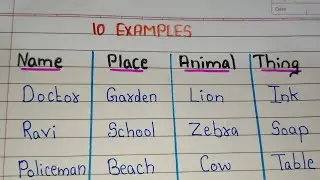 10 EXAMPLES
Name Place Animal Thing
Doctor Garden Lion Ink
Ravi School Zebra Soap
Policeman Beach Cow Table